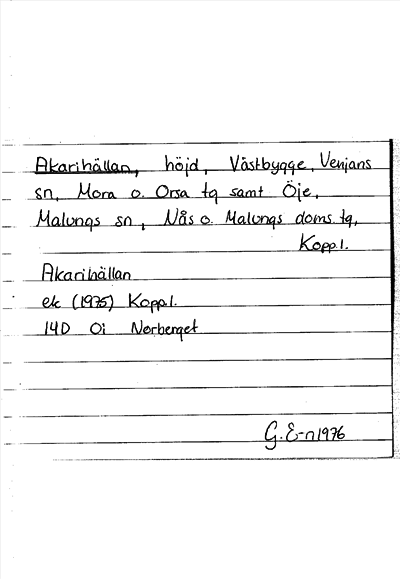 Akarihällan, höjd, Västbygge, Venjans
sn, Mora o. Orsa tg samt Öje,
Malungs sn, Nås o. Malungs doms. tg,
Koppl.
Akarihällan
ek (1975) Koppl.
14D 0i Norberget
G. E-n 1976